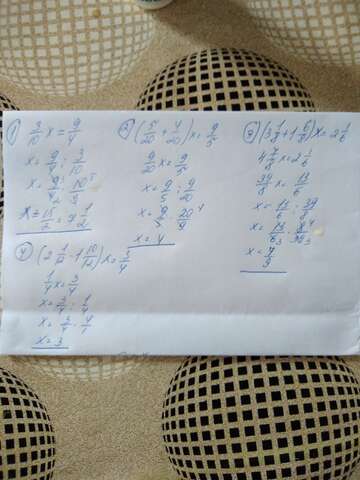 1) 3/10 x = 9/4
x = 9/4 : 3/10
x = 9/4 · 10/3
x = 15/2 = 9 1/2
2) (5/20 + 4/20) x = 9/5
9/20 x = 9/5
x = 9/5 : 9/20
x = 9/5 · 20/9
x = 4
3) (3 1/8 + 1 6/8) x = 2 1/6
4 7/8 x = 2 1/6
39/8 x = 13/6
x = 13/6 : 39/8
x = 13/6 · 8/39
4) (2 1/12 - 1 10/12) x = 3/4
1/4 x = 3/4
x = 3/4 : 1/4
x = 3/4 · 4/1
x = 3